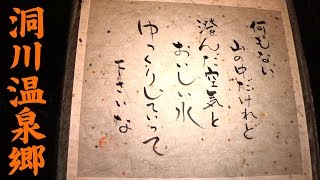 洞川温泉郷
何もない
山の中だけれど
澄んだ空気と
おいしい水
ゆっくりしていって
下さいな